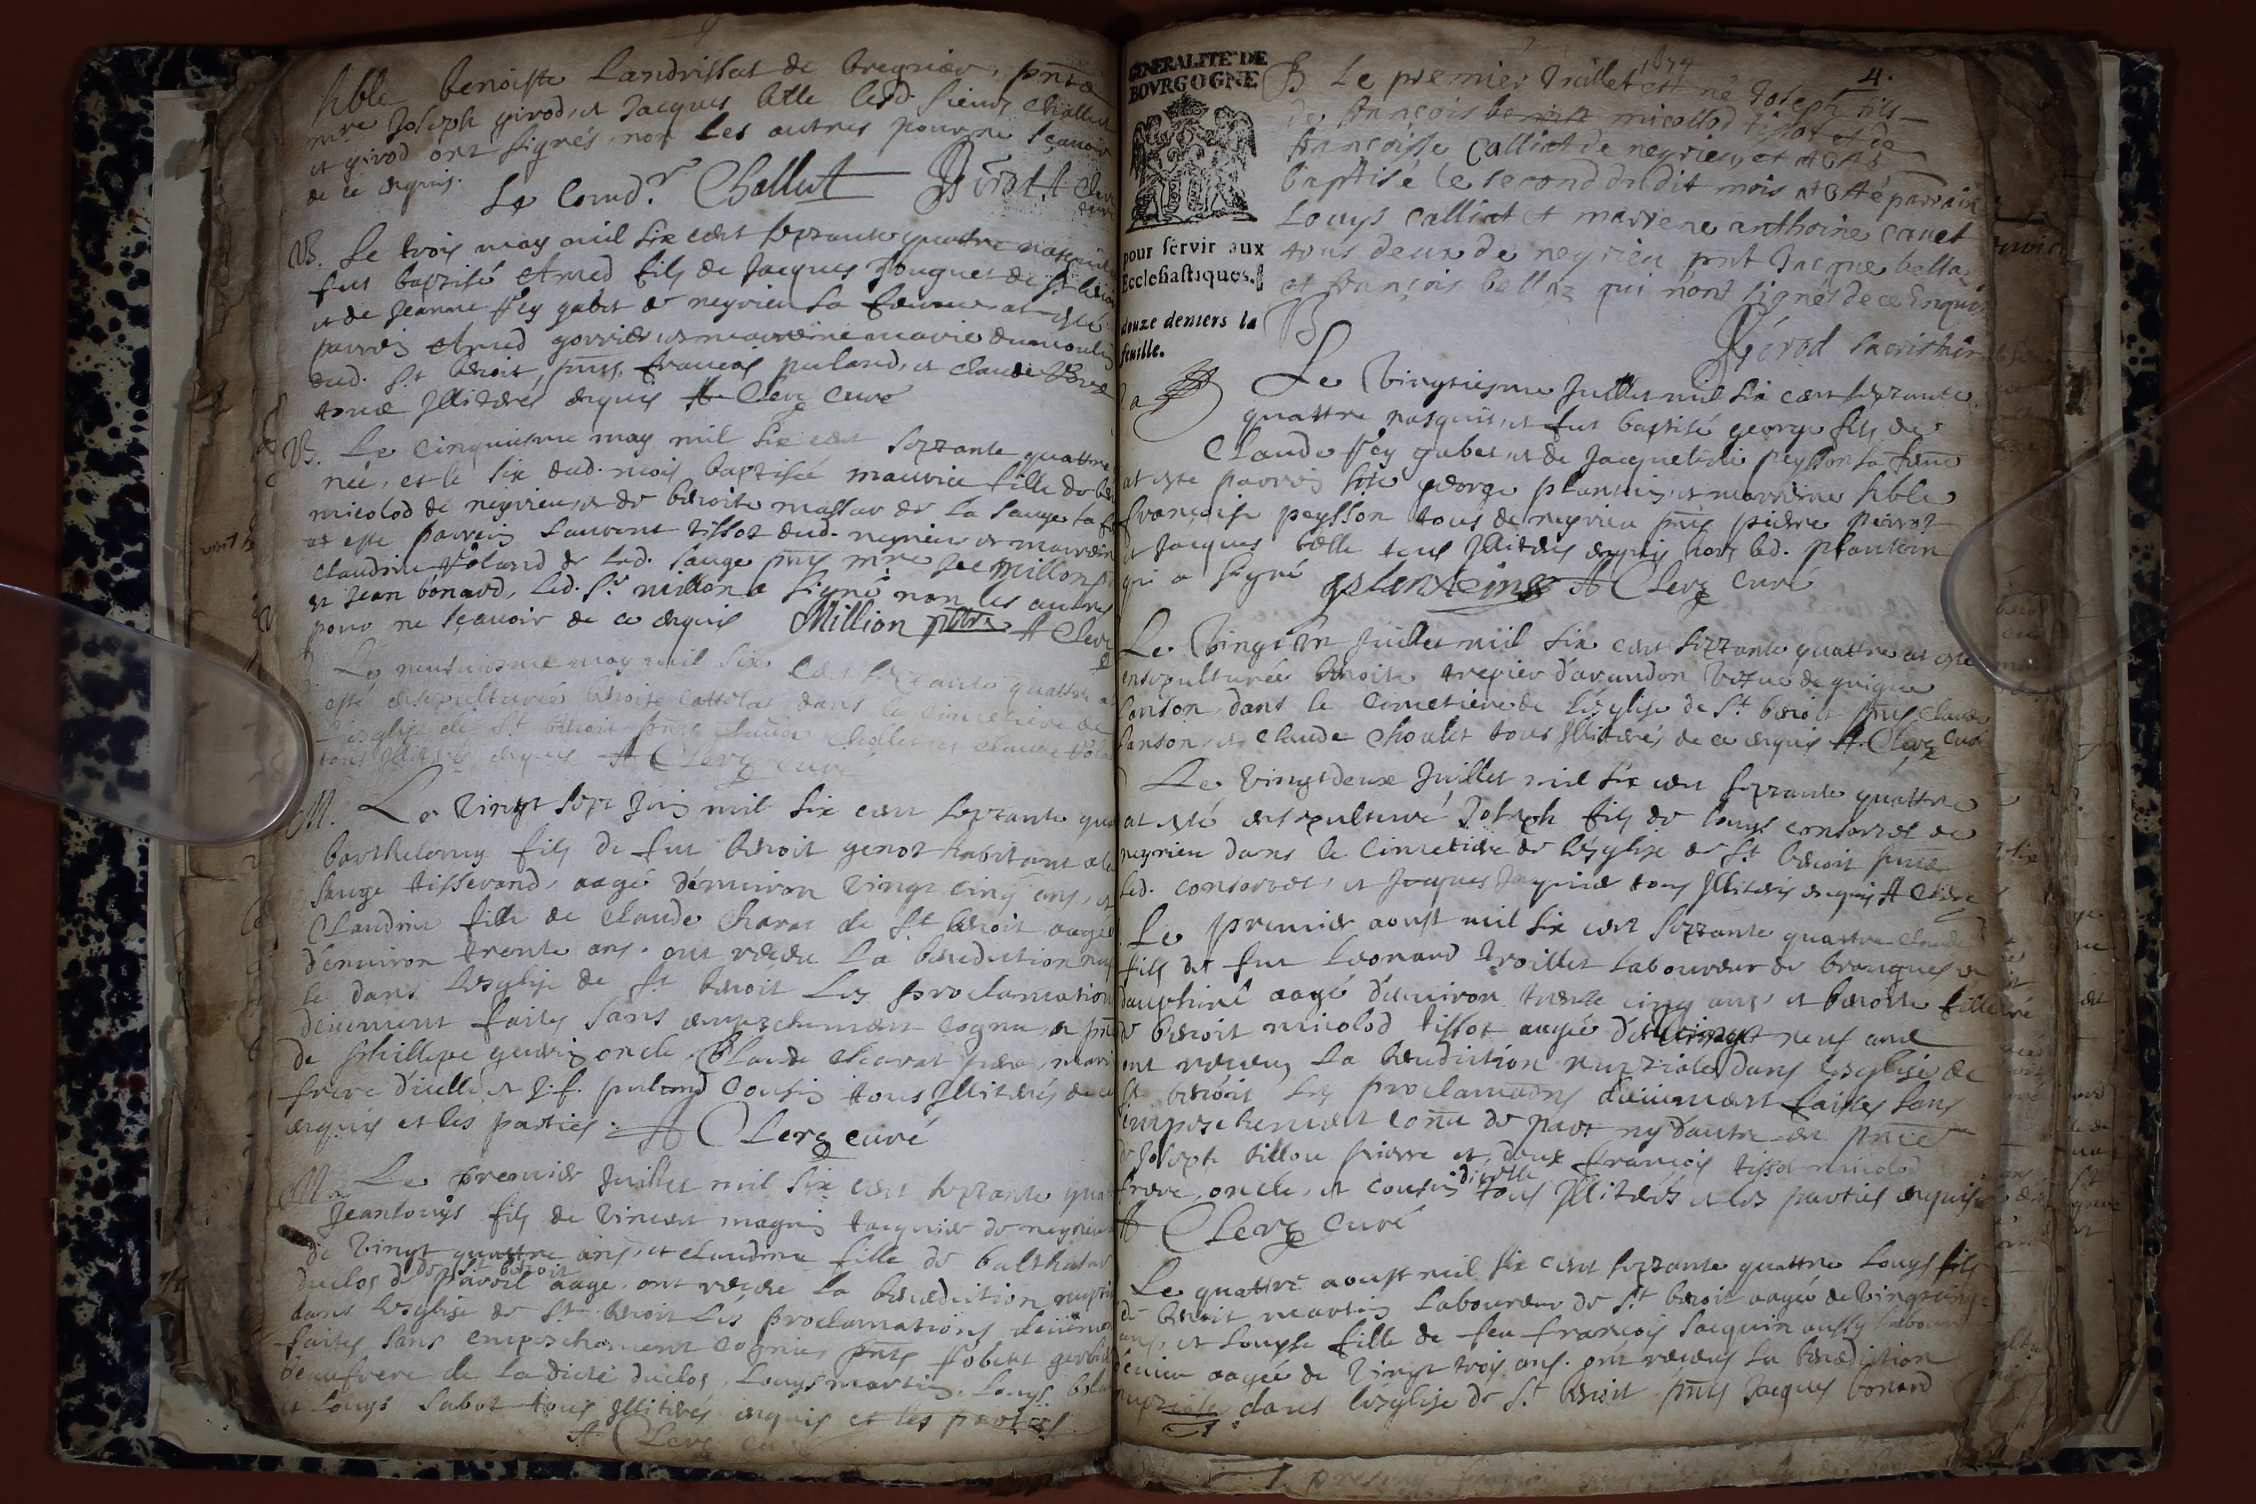 hble benoiste Landrisset de bregnier, pnts
mre Joseph girod, et Jacques belle lesd. sieurs Challut
et girod ont signés, non les autres pour ne sçauoir
de ce enquis. Le Comdr Challut Girod A Clerc curé
B. Le trois may mil six cent septante quattre nasquit
fut baptisé Amed fils de Jacques Jouguet de St benoit
et de Jeanne Rey gabet de neyrieu sa femme at esté
parrin Amed gorrier et marreine marie dumoulin
dud. St benoit, pnts françois puland, et claude
tous Jllitérés enquis A Clerc curé
B. Le cinquiesme may mil six cent septante quattre
née, et le six dud. mois baptisée maurice fille de
micolod de neyrieu, et de benoite massar de la sauge sa
at esté parrein Laurent tissot dud. neyrieu et marreine
Claudine Roland de lad. sauge pnts mre millon
et jean bonard, Led. Sr millon a signé non les autres
pour ne sçauoir de ce enquis Million pbtre A Clerc
Le neufuiesme may mil six cent septante quattre at
esté ensepulturée benoite dans le cimetiere de
l'esglise de St benoit pnts claude Chollet et claude
tous Jllitérés enquis A Clerc curé
M. Le vingt sept Juin mil six cent septante
barthelemy fils de feu benoit genot habitant a la
sauge tisserand, aagé d'enuiron vingt cinq ans, et
Claudine fille de Claude Charat de St benoit aagée
d'enuiron trente ans. ont receu La benediction
le dans l'esglise de St benoit Les proclamations
deüement faites sans empeschement cognu,
de philippe oncle Claude Charat pere,
frere d'icelle, et J. f. puland cousin tous Jllitérés de ce
enquis et les parties. A Clerc curé
M. Le premier Juillet mil six cent septante
Jeanlouys fils de vincent magnin de neyrieu
de vingt quattre ans, et claudine fille de balthasar
duclos de St benoit de pareil aage, ont receu la benediction
dans l'esglise de St benoit Les proclamations deüement
faites sans empeschement cognu, pnts Robert
beaufrere de La dicte duclos, Louys martin, Louys
et Louys Sabot tous Jllitérés enquis et les parties
A Clerc curé
GENERALITE DE
BOVRGOGNE
pour servir aux
Ecclesiastiques.
douze deniers la
feuille.
1674
4.
B Le premier Juillet est né Joseph fils
de françois micollod tissot et de
françoisse Calliat de neyrieu et at esté
baptisé le second dudit mois at esté parrain
Louys Calliat et marrene anthoine canet
tous deux de neyrieu pnt Jacque bella
et françois bellaz qui n'ont signés de ce enquis
Gérod sacristain
Le vingtiesme Juillet mil six cent septante
quattre nasquit, et fut baptisé george fils de
Claude Rey gabet et de Jacqueline peysson sa feme
at esté parrein hble george plantin, et marreine hble
françoise peysson tous de neyrieu pnts pierre perrot
et Jacques belle tous Jllitérés enquis hors led. plantin
qui a signé gplantein A Clerc curé
Le vingt un Juillet mil six cent septante quattre at esté
ensepulturée benoite trepier d'auandon vefue de guigue
sanson, dans le cimetiere de l'esglise de St benoit pnts claude
sanson, et claude Choulet tous Jllitérés de ce enquis A. Clerc Curé
Le vingtdeux Juillet mil six cent septante quattre
at esté ensepulturé Joseph fils de Louys consorret de
neyrieu dans le cimetiere de l'esglise de St benoit pnts
led. consorret, et Jacques Jaquier tous Jllitérés enquis A Clerc
Le premier aoust mil six cent septante quattre claude
fils de feu Leonard troillet laboureur de brangues en
dauphiné aagé d'enuiron trente cinq ans, et benoite fille
de benoit micolod tissot aagée d'enuiron vingt neuf ans
ont receu la benediction nuptiale dans l'esglise de
St benoit Les proclamaons deüement faites sans
empeschement conu de part ny d'autre en pnce
de Joseph tillou pierre et deux françois tissot micolod
frere, oncle, et cousin d'icelle tous Jllitérés et les parties enquises
A Clerc curé
Le quattre aoust mil six cent septante quattre Louys fils
de benoit martin laboureur de St benoit aagé de vingtcinq
ans, et Louyse fille de feu françois Jacquin aussy laboureur
aagée de vingt trois ans. ont receu La benediction
nuptiale dans l'esglise de St benoit pnts Jacques bonard